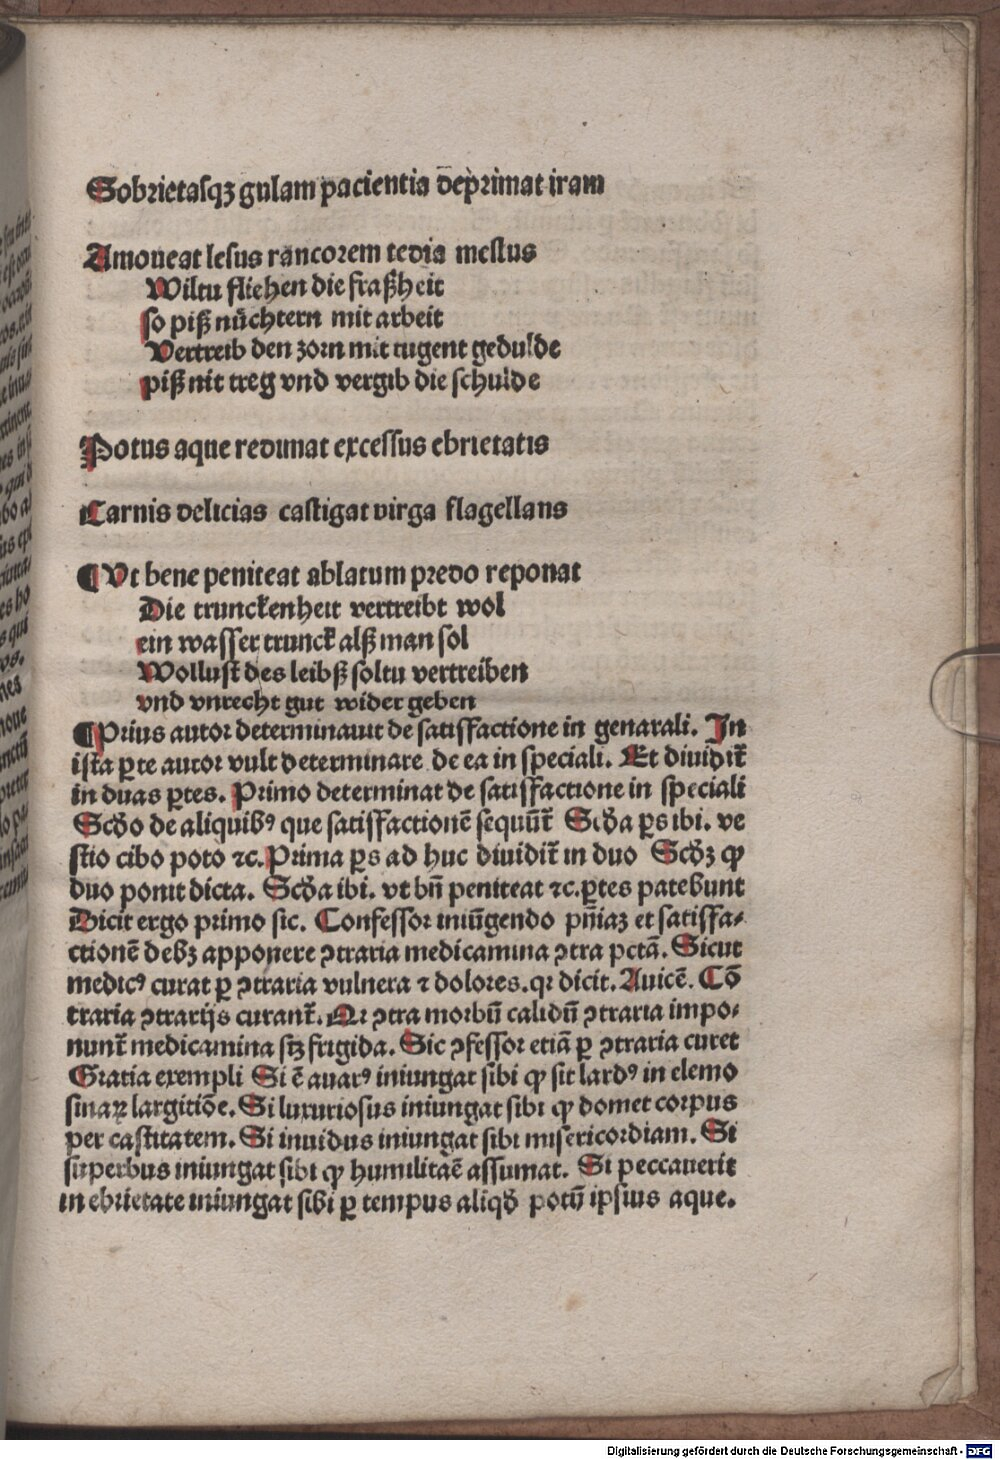 Sobrietasqꝫ gulam pacientia dep̄rimat iram
Amoueat lesus rancorem tedia mestus
Wiltu fliehen die fraßheit
so piß nüchtern mit arbeit
Vertreib den zorn mit tugent gedulde
piß nit treg vnd vergib die schulde
Potus aque redimat excessus ebrietatis
Carnis delicias castigat virga flagellans
¶ Vt bene peniteat ablatum predo reponat
Die trunckenheit vertreibt wol
ein wasser trunck alß man sol
Wollust des leibß soltu vertreiben
vnd vnrecht gut wider geben
¶ Prius autor determinauit de satisfactione in genarali. In
ista ꝑte autor vult determinare de ea in speciali. Et diuidit̃
in duas ꝑtes. Primo determinat de satisfactione in speciali
Scđo de aliquibꝰ que satisfactionē sequūt̃ Scđa ꝑs ibi. ve
stio cibo poto ⁊c. Prima ꝑs ad huc diuidit̃ in duo Scđꝫ ꝙ
duo ponit dicta. Scđa ibi. vt bn̄ peniteat ⁊c. ꝑtes patebunt
Dicit ergo primo sic. Confessor iniūgendo pn̄iaꝫ et satisfa⸗
ctionē debꝫ apponere ↄtraria medicamina ↄtra pctā. Sicut
medicꝰ curat ꝑ ↄtraria vulnera ⁊ dolores. qꝛ dicit. Auicē. Cō
traria ↄtrarijs curant̃. Nā ↄtra morbū calidū ↄtraria impo⸗
nunt̃ medicamina sꝫ frigida. Sic ↄfessor etiā ꝑ ↄtraria curet
Gratia exempli Si ē auarꝰ iniungat sibi ꝙ sit lardꝰ in elemo
sinaꝝ largitiōe. Si luxuriosus iniungat sibi ꝙ domet corpus
per castitatem. Si inuidus iniungat sibi misericordiam. Si
superbus iniungat sibi ꝙ humilitaē assumat. Si peccauerit
in ebrietate iniungat sibi ꝑ tempus aliqđ potū ipsius aque.
Digitalisierung gefördert durch die Deutsche Forschungsgemeinschaft - DFG